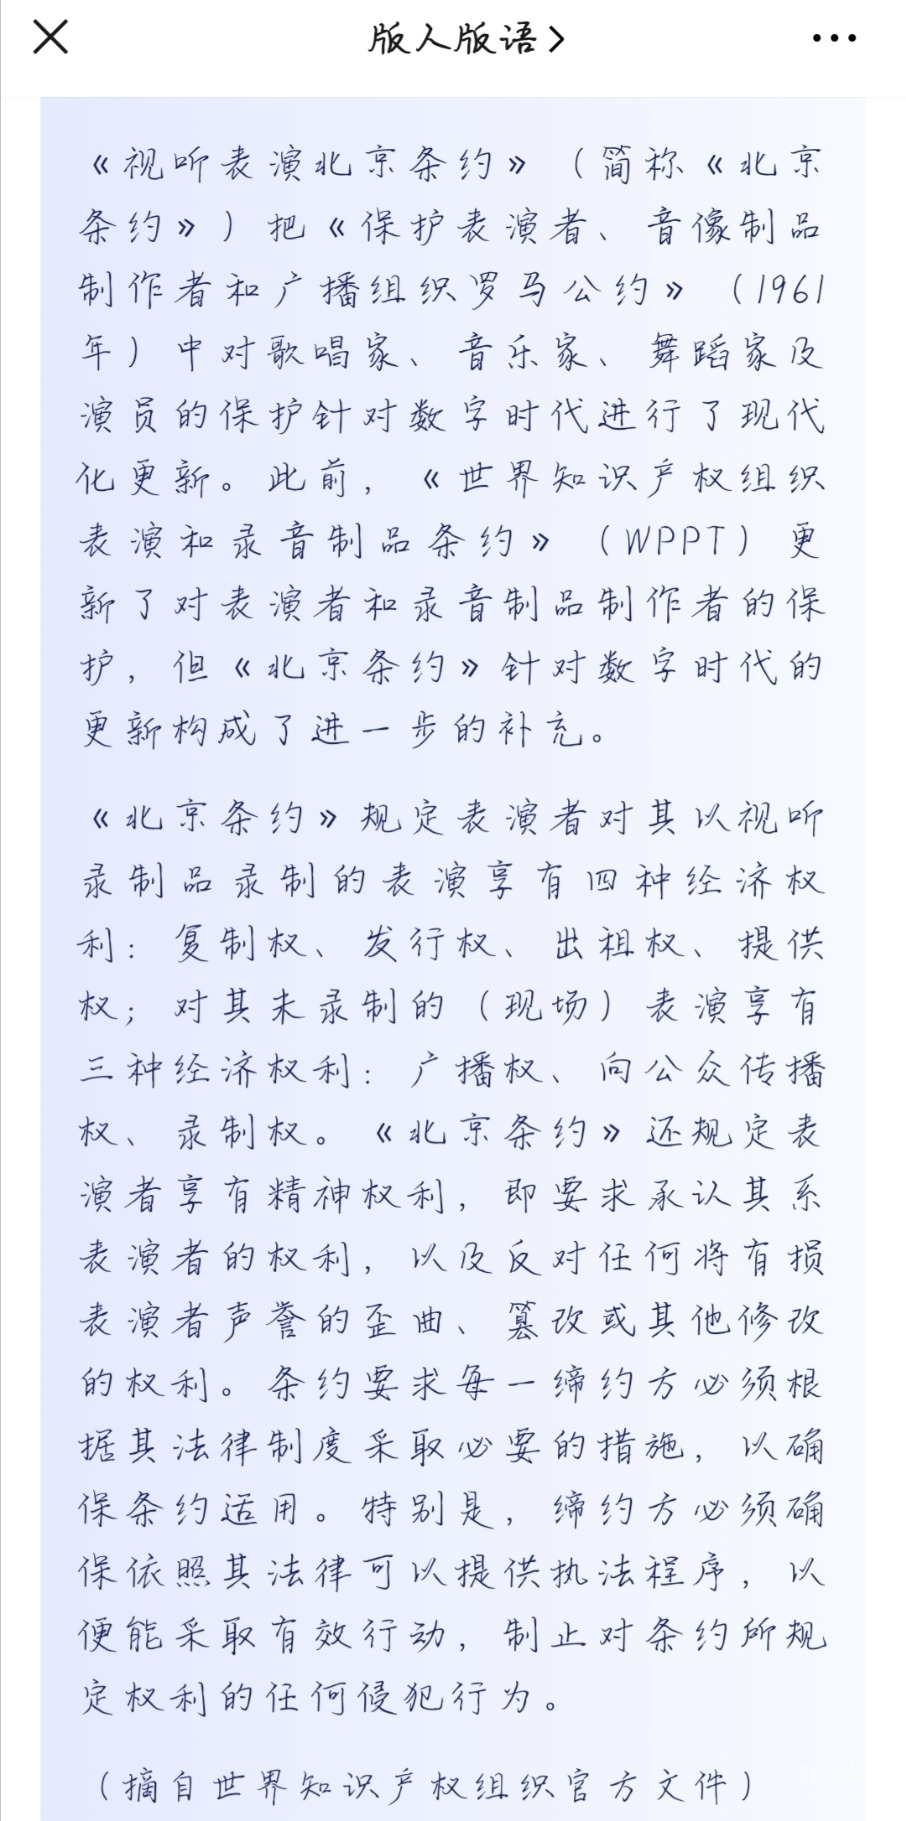 版人版语
《视听表演北京条约》（简称《北京
条约》）把《保护表演者、音像制品
制作者和广播组织罗马公约》（1961
年）中对歌唱家、音乐家、舞蹈家及
演员的保护针对数字时代进行了现代
化更新。此前，《世界知识产权组织
表演和录音制品条约》（WPPT）更
新了对表演者和录音制品制作者的保
护，但《北京条约》针对数字时代的
更新构成了进一步的补充。
《北京条约》规定表演者对其以视听
录制品录制的表演享有四种经济权
利：复制权、发行权、出租权、提供
权；对其未录制的（现场）表演享有
三种经济权利：广播权、向公众传播
权、录制权。《北京条约》还规定表
演者享有精神权利，即要求承认其系
表演者的权利，以及反对任何将有损
表演者声誉的歪曲、篡改或其他修改
的权利。条约要求每一缔约方必须根
据其法律制度采取必要的措施，以确
保条约适用。特别是，缔约方必须确
保依照其法律可以提供执法程序，以
便能采取有效行动，制止对条约所规
定权利的任何侵犯行为。
（摘自世界知识产权组织官方文件）